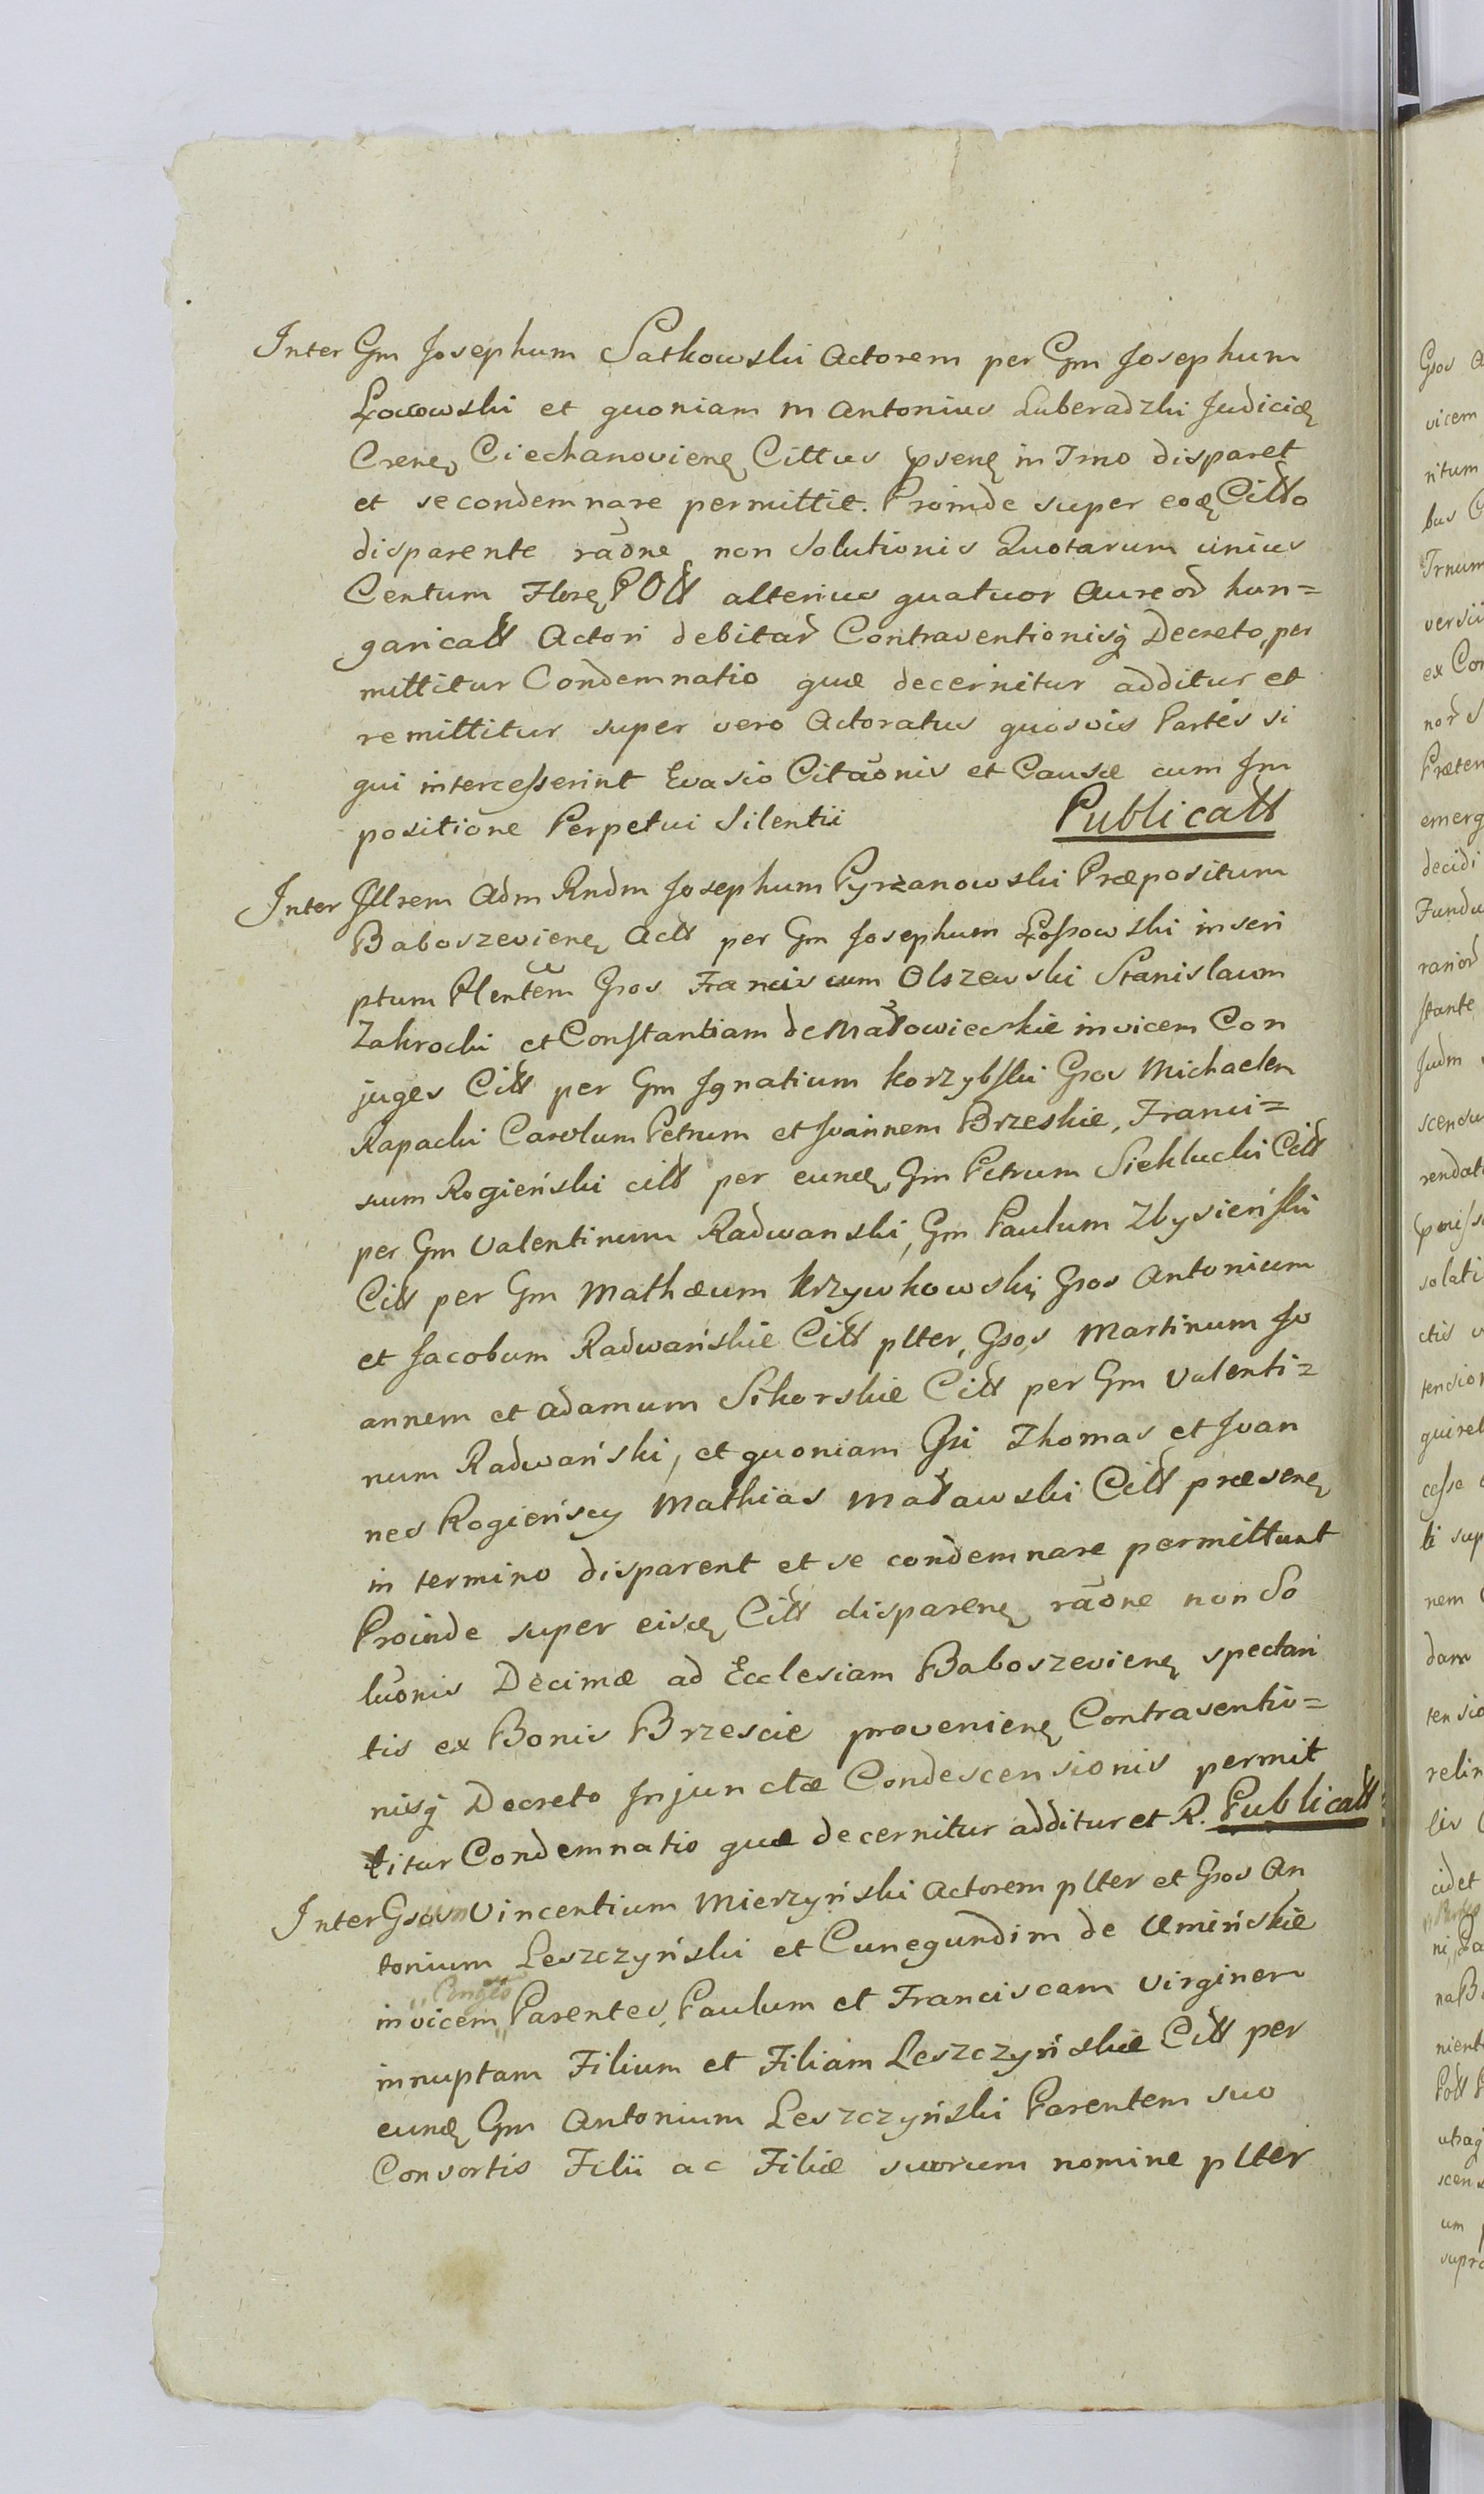 Inter Gm Josephum Satkowski Actorem per Gm Josephum
Łossowski et quoniam M Antonius Luberadzki Judicię
Crenę Ciechanovienę Cittus psenę in Tmo disparet
et se condemnare permittit. Proinde super eoę Citto
disparente raõne non Solutionis Quotarum unius
Centum Florę POtt alterius quatuor Aureor hun=
garicatt Actori debitar Contraventionisq Decreto, per
mittitur Condemnatio quæ decernitur additur et
remittitur super vero Actoratus quosvis Partes si
qui intercesserint Evasio Citaõnis et Causæ cum Im
positione Perpetui Silentii Publicatt
Inter Illrem Adm Rndm Josephum Pyrzanowski Præpositum
Baboszevienę Actt per Gm Josephum Łossowski inscri
ptum Plentem Gsos Franciscum Olszewski Stanislaum
Zakrocki et Constantiam de Małowieckie invicem Con
juges Citt per Gm Ignatium Korzybski Gsos Michaelem
Rapacki Carolum Petrum et Joannem Brzeskie, Franci=
scum Rogieński citt per eunę Gm Petrum Sieklucki Citt
per Gm Valentinum Radwanski, Gm Paulum Zbysieński
Citt per Gm Mathæum Krzywkowski, Gsos Antonium
et Jacobum Radwańskie Citt plter, Gsos Martinum Jo
annem et Adamum Sikorskie Citt per Gm Valenti=
num Radwański, et quoniam Gsi Thomas et Joan
nes Rogieńscy Mathias Maławski Citt præsenę
in termino disparent et se condemnare permittunt
Proinde super eisę Citt disparenę raõne non So
luõnis Decimæ ad Ecclesiam Baboszevienę spectan
tis ex Bonis Brzescie provenienę Contraventio=
nisq Decreto Injunctæ Condescensionis permit
titur Condemnatio quæ decernitur additur et R. Publicatt
Inter Gsum Vincentium Mierzyński Actorem plter et Gsos An
tonium Leszczyński et Cunegundim de Umińskie
"Conges
invicem" Parentes, Paulum et Franciscam Virginem
innuptam Filium et Filiam Leszczyńskie Citt per
eunę Gm Antonium Leszczyński Parentem suo
Consortis Filii ac Filiæ suorum nomine plter